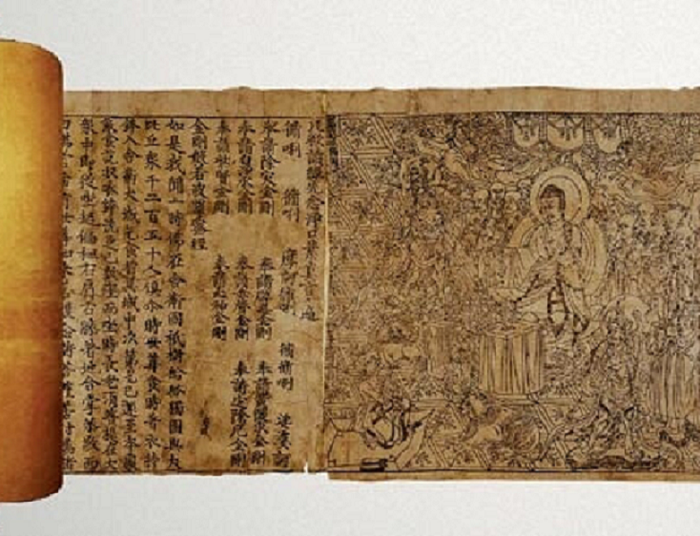 脩唎 脩唎 摩訶脩唎 脩脩唎 娑婆訶
奉請除灾金剛 奉請辟毒金剛
奉請金剛 奉請金剛 奉請金剛
奉請紫賢金剛 奉請大神金剛
金剛般若波羅蜜經
如是我聞一時佛在舍衛國祇樹給孤獨園與大
比丘衆千二百五十人俱尒時世尊食時著衣持
鉢入舍衛大城乞食於其城中次第乞已還至本處
飯食訖收衣鉢洗足已敷座而坐時長老須菩提在大
衆中即從座起偏袒右肩右膝著地合掌恭敬而